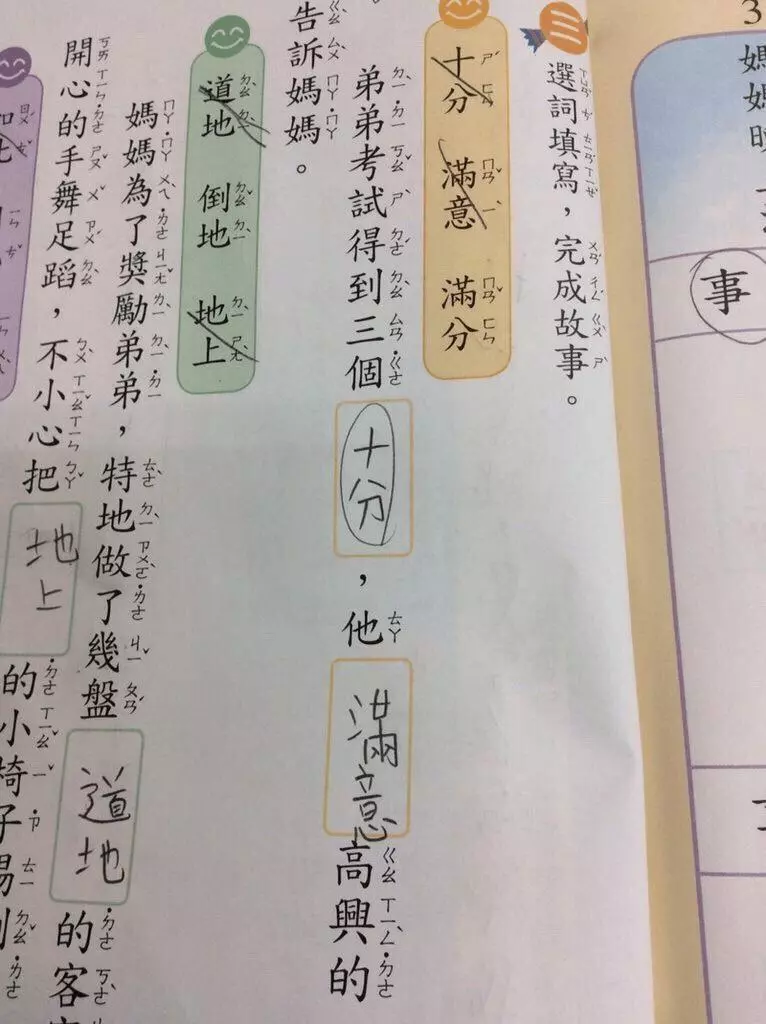 選詞填寫，完成故事。
十分 滿意 滿分
弟弟考試得到三個十分，他滿意高興的
告訴媽媽。
道地 倒地 地上
媽媽為了獎勵弟弟，特地做了幾盤道地的客
開心的手舞足蹈，不小心把地上
的小椅子踢到
3
媽媽
事